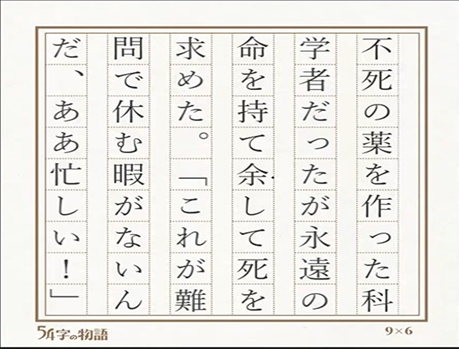 不死の薬を作った科
学者だったが永遠の
命を持て余して死を
求めた。「これが難
問で休む暇がないん
だ、ああ忙しい！」
54字の物語
9×6